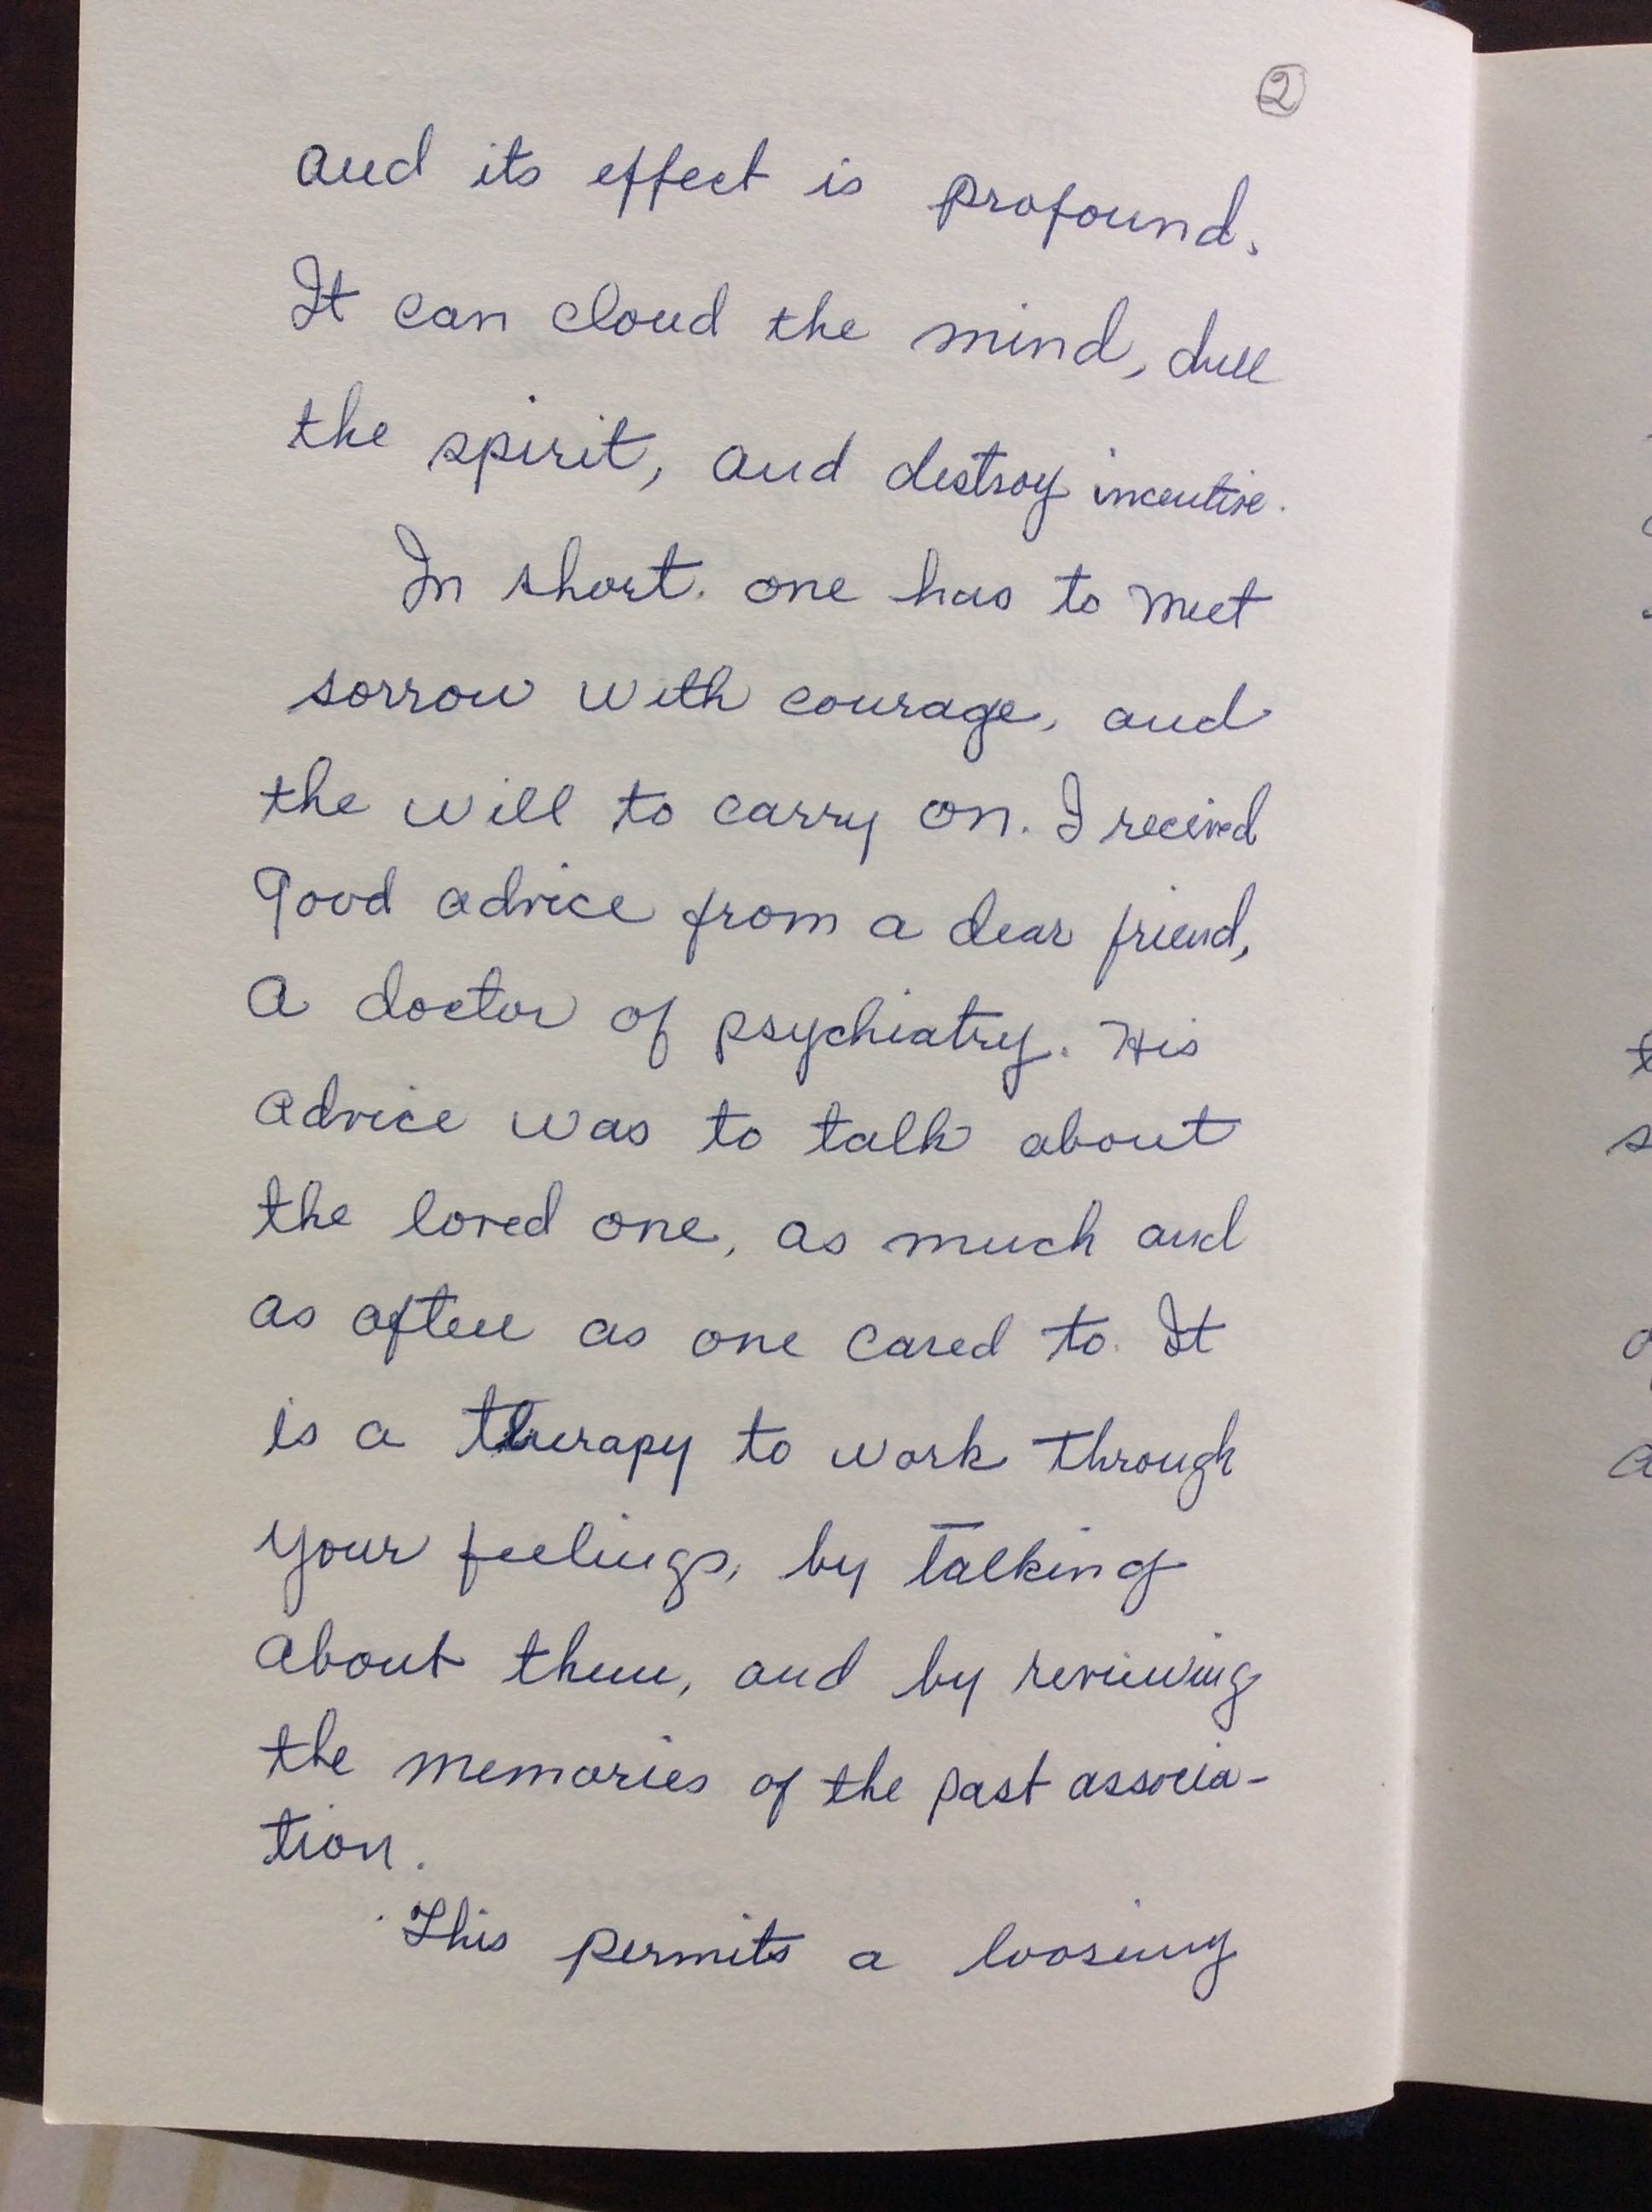 2
and its effect is profound.
It can cloud the mind, dull
the spirit, and destroy incentive.
In short. one has to meet
sorrow with courage, and
the will to carry on. I received
good advice from a dear friend,
a doctor of psychiatry. His
advice was to talk about
the loved one, as much and
as often as one cared to. It
is a therapy to work through
your feelings, by talking
about them, and by reviewing
the memories of the past associa-
tion.
This permits a loosing